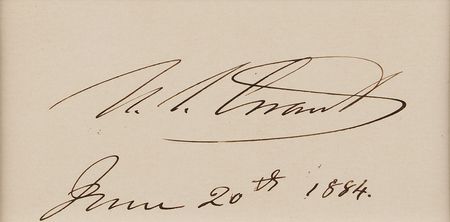 U. S. Grant
June 20th 1884.